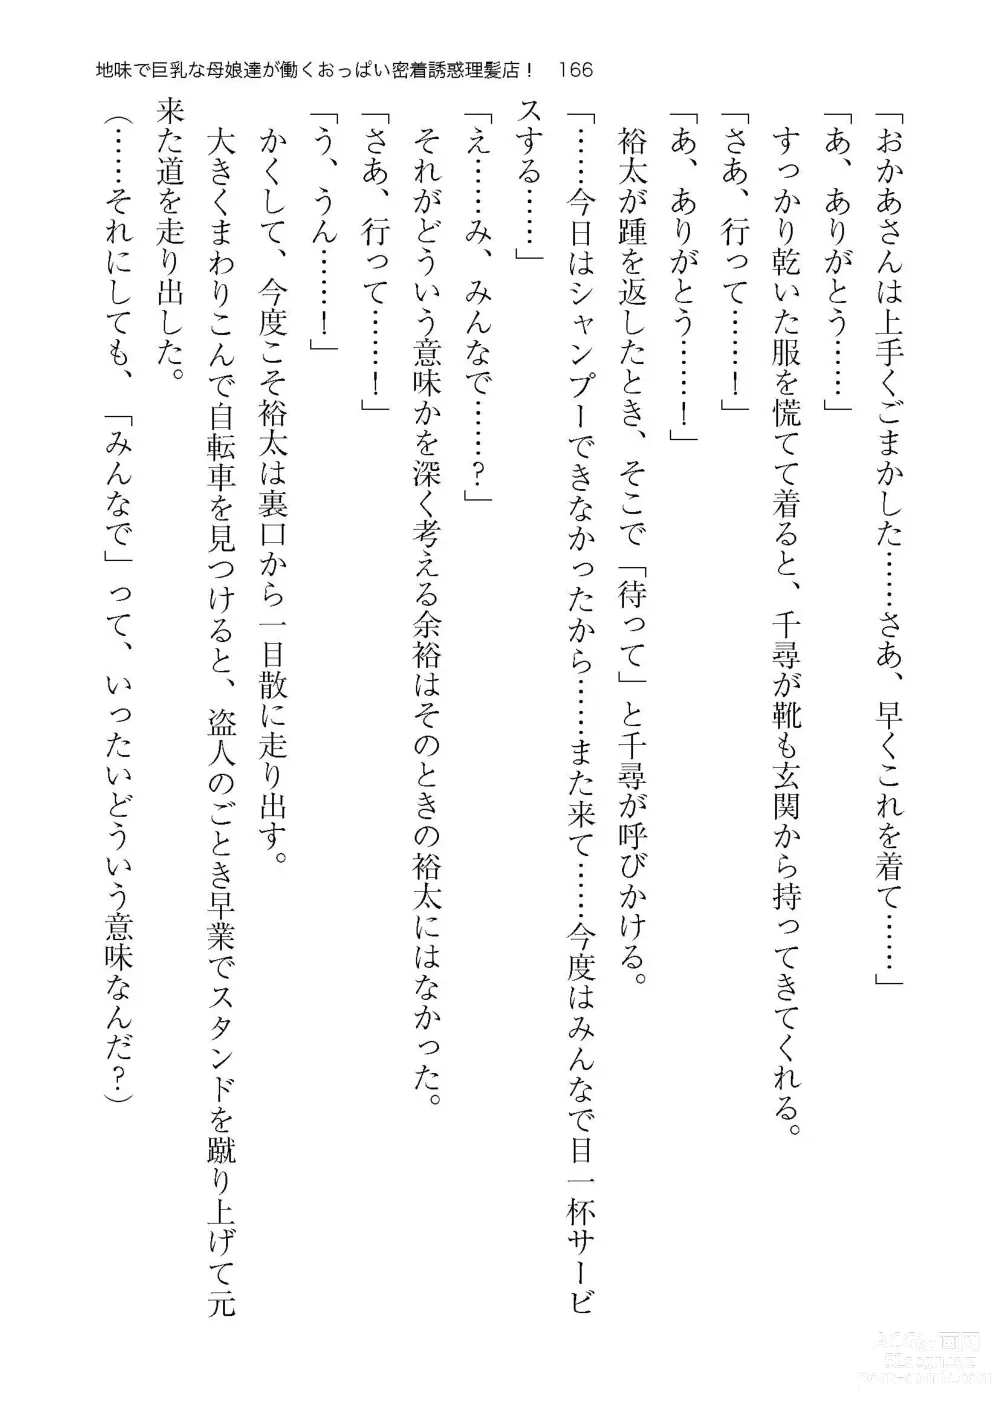 地味で巨乳な母娘達が働くおっぱい密着誘惑理髪店！　166
「おかあさんは上手くごまかした……さあ、早くこれを着て……」
「あ、ありがとう……」
　すっかり乾いた服を慌てて着ると、千尋が靴も玄関から持ってきてくれる。
「さあ、行って……！」
「あ、ありがとう……！」
　裕太が踵を返したとき、そこで「待って」と千尋が呼びかける。
「……今日はシャンプーできなかったから……また来て……今度はみんなで目一杯サービ
スする……」
「え……み、みんなで……？」
　それがどういう意味かを深く考える余裕はそのときの裕太にはなかった。
「さあ、行って……！」
「う、うん……！」
　かくして、今度こそ裕太は裏口から一目散に走り出す。
　大きくまわりこんで自転車を見つけると、盗人のごとき早業でスタンドを蹴り上げて元
来た道を走り出した。
（……それにしても、「みんなで」って、いったいどういう意味なんだ？）
ACG画网
52acgw.xyz
porn-comic.com